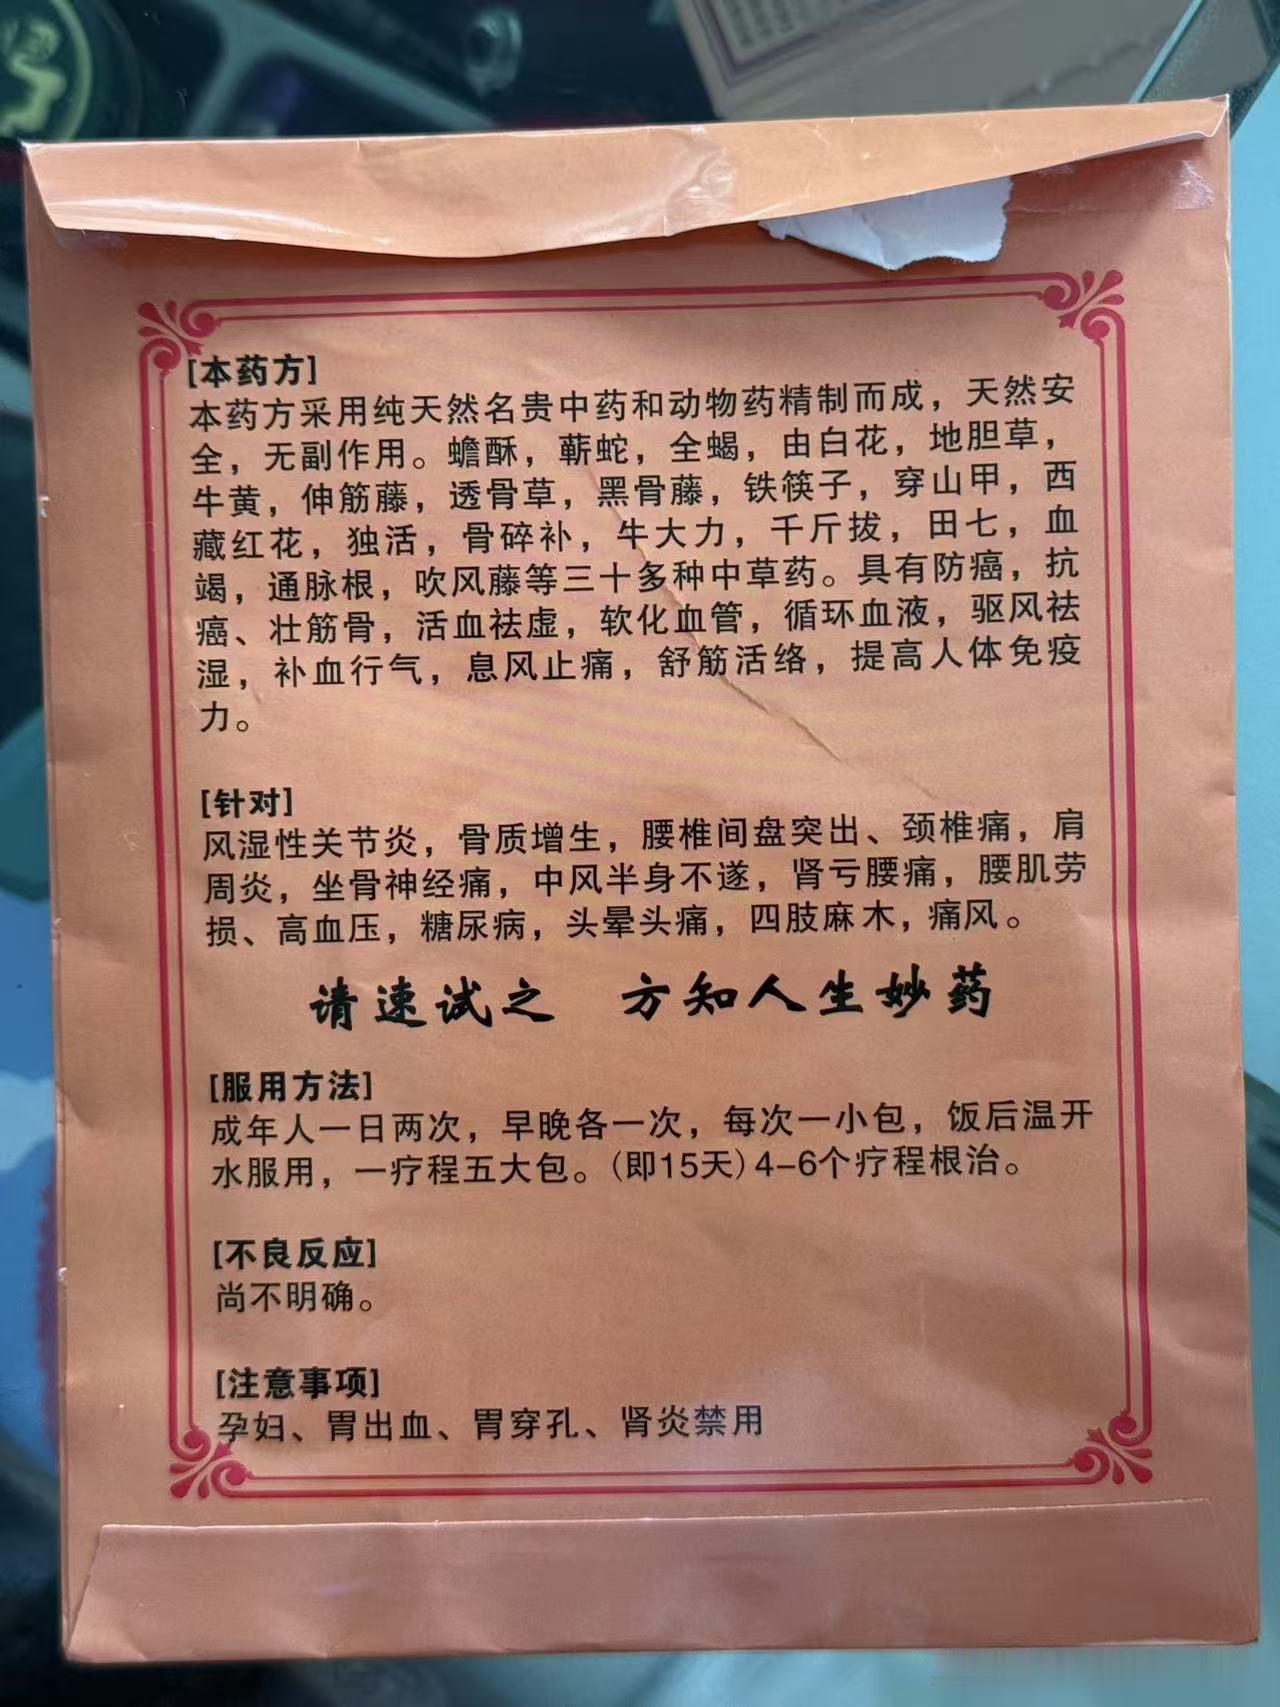 [本药方]
本药方采用纯天然名贵中药和动物药精制而成，天然安
全，无副作用。蟾酥，蕲蛇，全蝎，由白花，地胆草，
牛黄，伸筋藤，透骨草，黑骨藤，铁筷子，穿山甲，西
藏红花，独活，骨碎补，牛大力，千斤拔，田七，血
竭，通脉根，吹风藤等三十多种中草药。具有防癌，抗
癌、壮筋骨，活血祛虚，软化血管，循环血液，驱风祛
湿，补血行气，息风止痛，舒筋活络，提高人体免疫
力。
[针对]
风湿性关节炎，骨质增生，腰椎间盘突出、颈椎痛，肩
周炎，坐骨神经痛，中风半身不遂，肾亏腰痛，腰肌劳
损、高血压，糖尿病，头晕头痛，四肢麻木，痛风。
请速试之 方知人生妙药
[服用方法]
成年人一日两次，早晚各一次，每次一小包，饭后温开
水服用，一疗程五大包。(即15天)4-6个疗程根治。
[不良反应]
尚不明确。
[注意事项]
孕妇、胃出血、胃穿孔、肾炎禁用